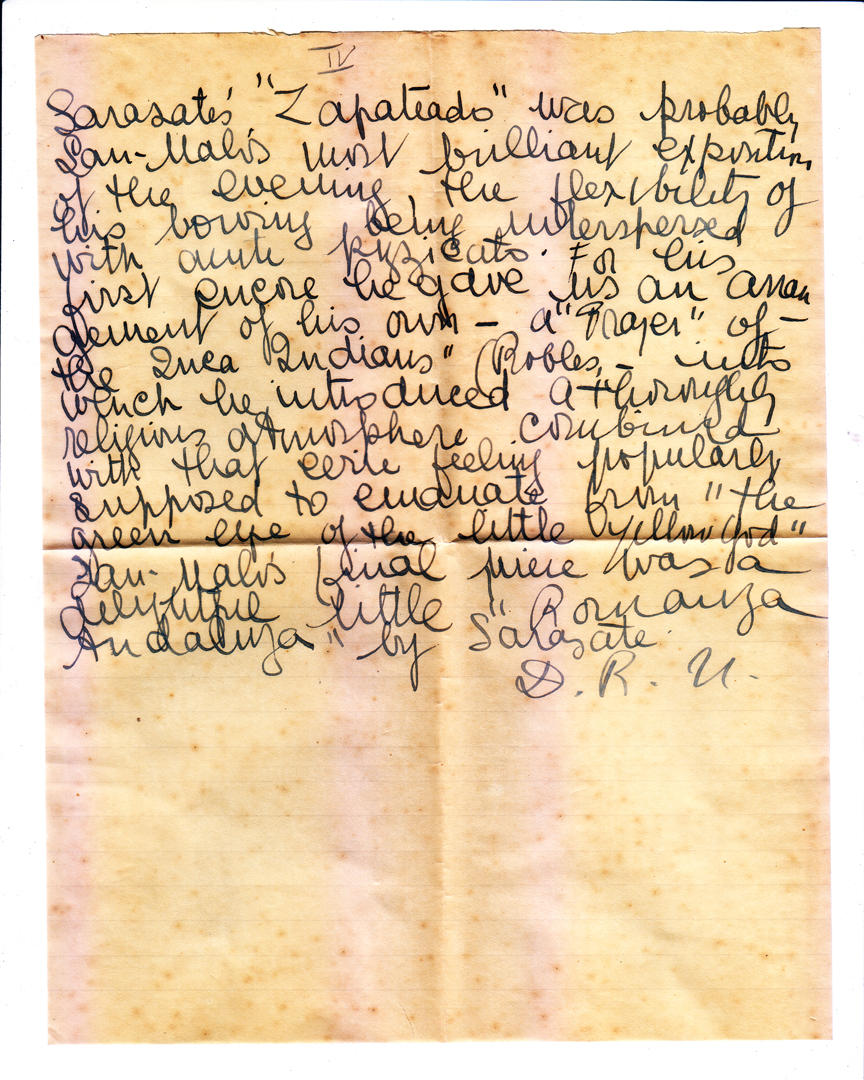 IV
Sarasate's "Zapateado" was probably
San-Malo's most brilliant exposition
of the evening, the flexibility of
his bowing being interspersed
with acute pizzicato. For his
first encore he gave us an arran
gement of his own – a "Prayer" of –
the Inca Indians" (Robles, – into
which he introduced a thoroughly
religious atmosphere combined
with that eerie feeling popularly
supposed to emanate from "the
green eye of the little yellow God"
San-Malo's final piece was a
delightful little "Romanza
Andaluza" by Sarasate.
D. R. U.